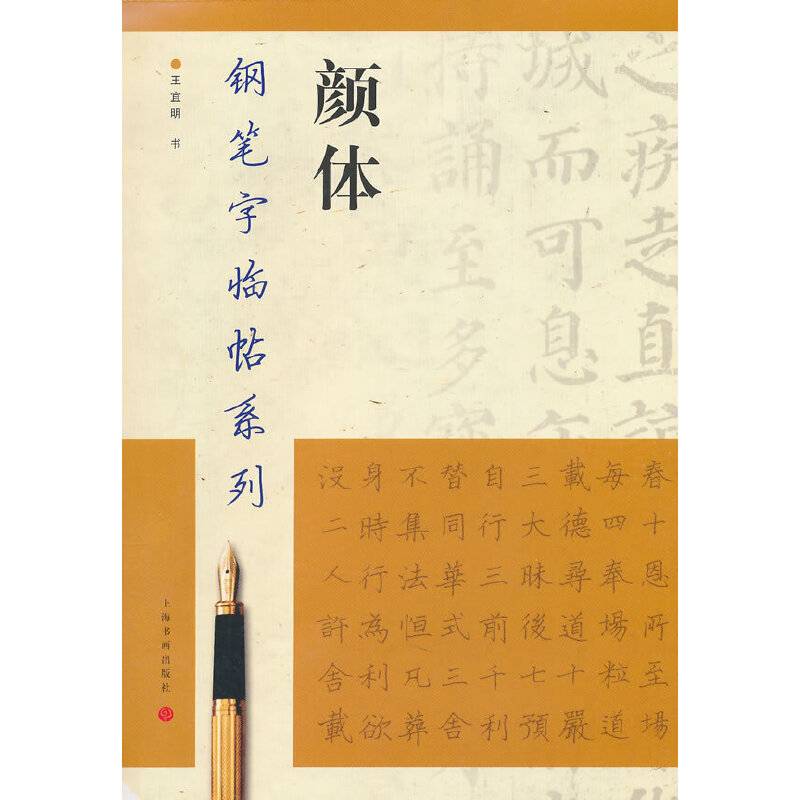 颜体
钢笔字临帖系列
王宜明 书
之疾走直
城而可息
持誦至多寶
春十恩所至場
每四奉場粒道
載德尋道十嚴
三大昧後七預
自行三前千利
替同華式三舍
不集法恒凡葬
身時行為利欲
没二人許舍載
上海书画出版社